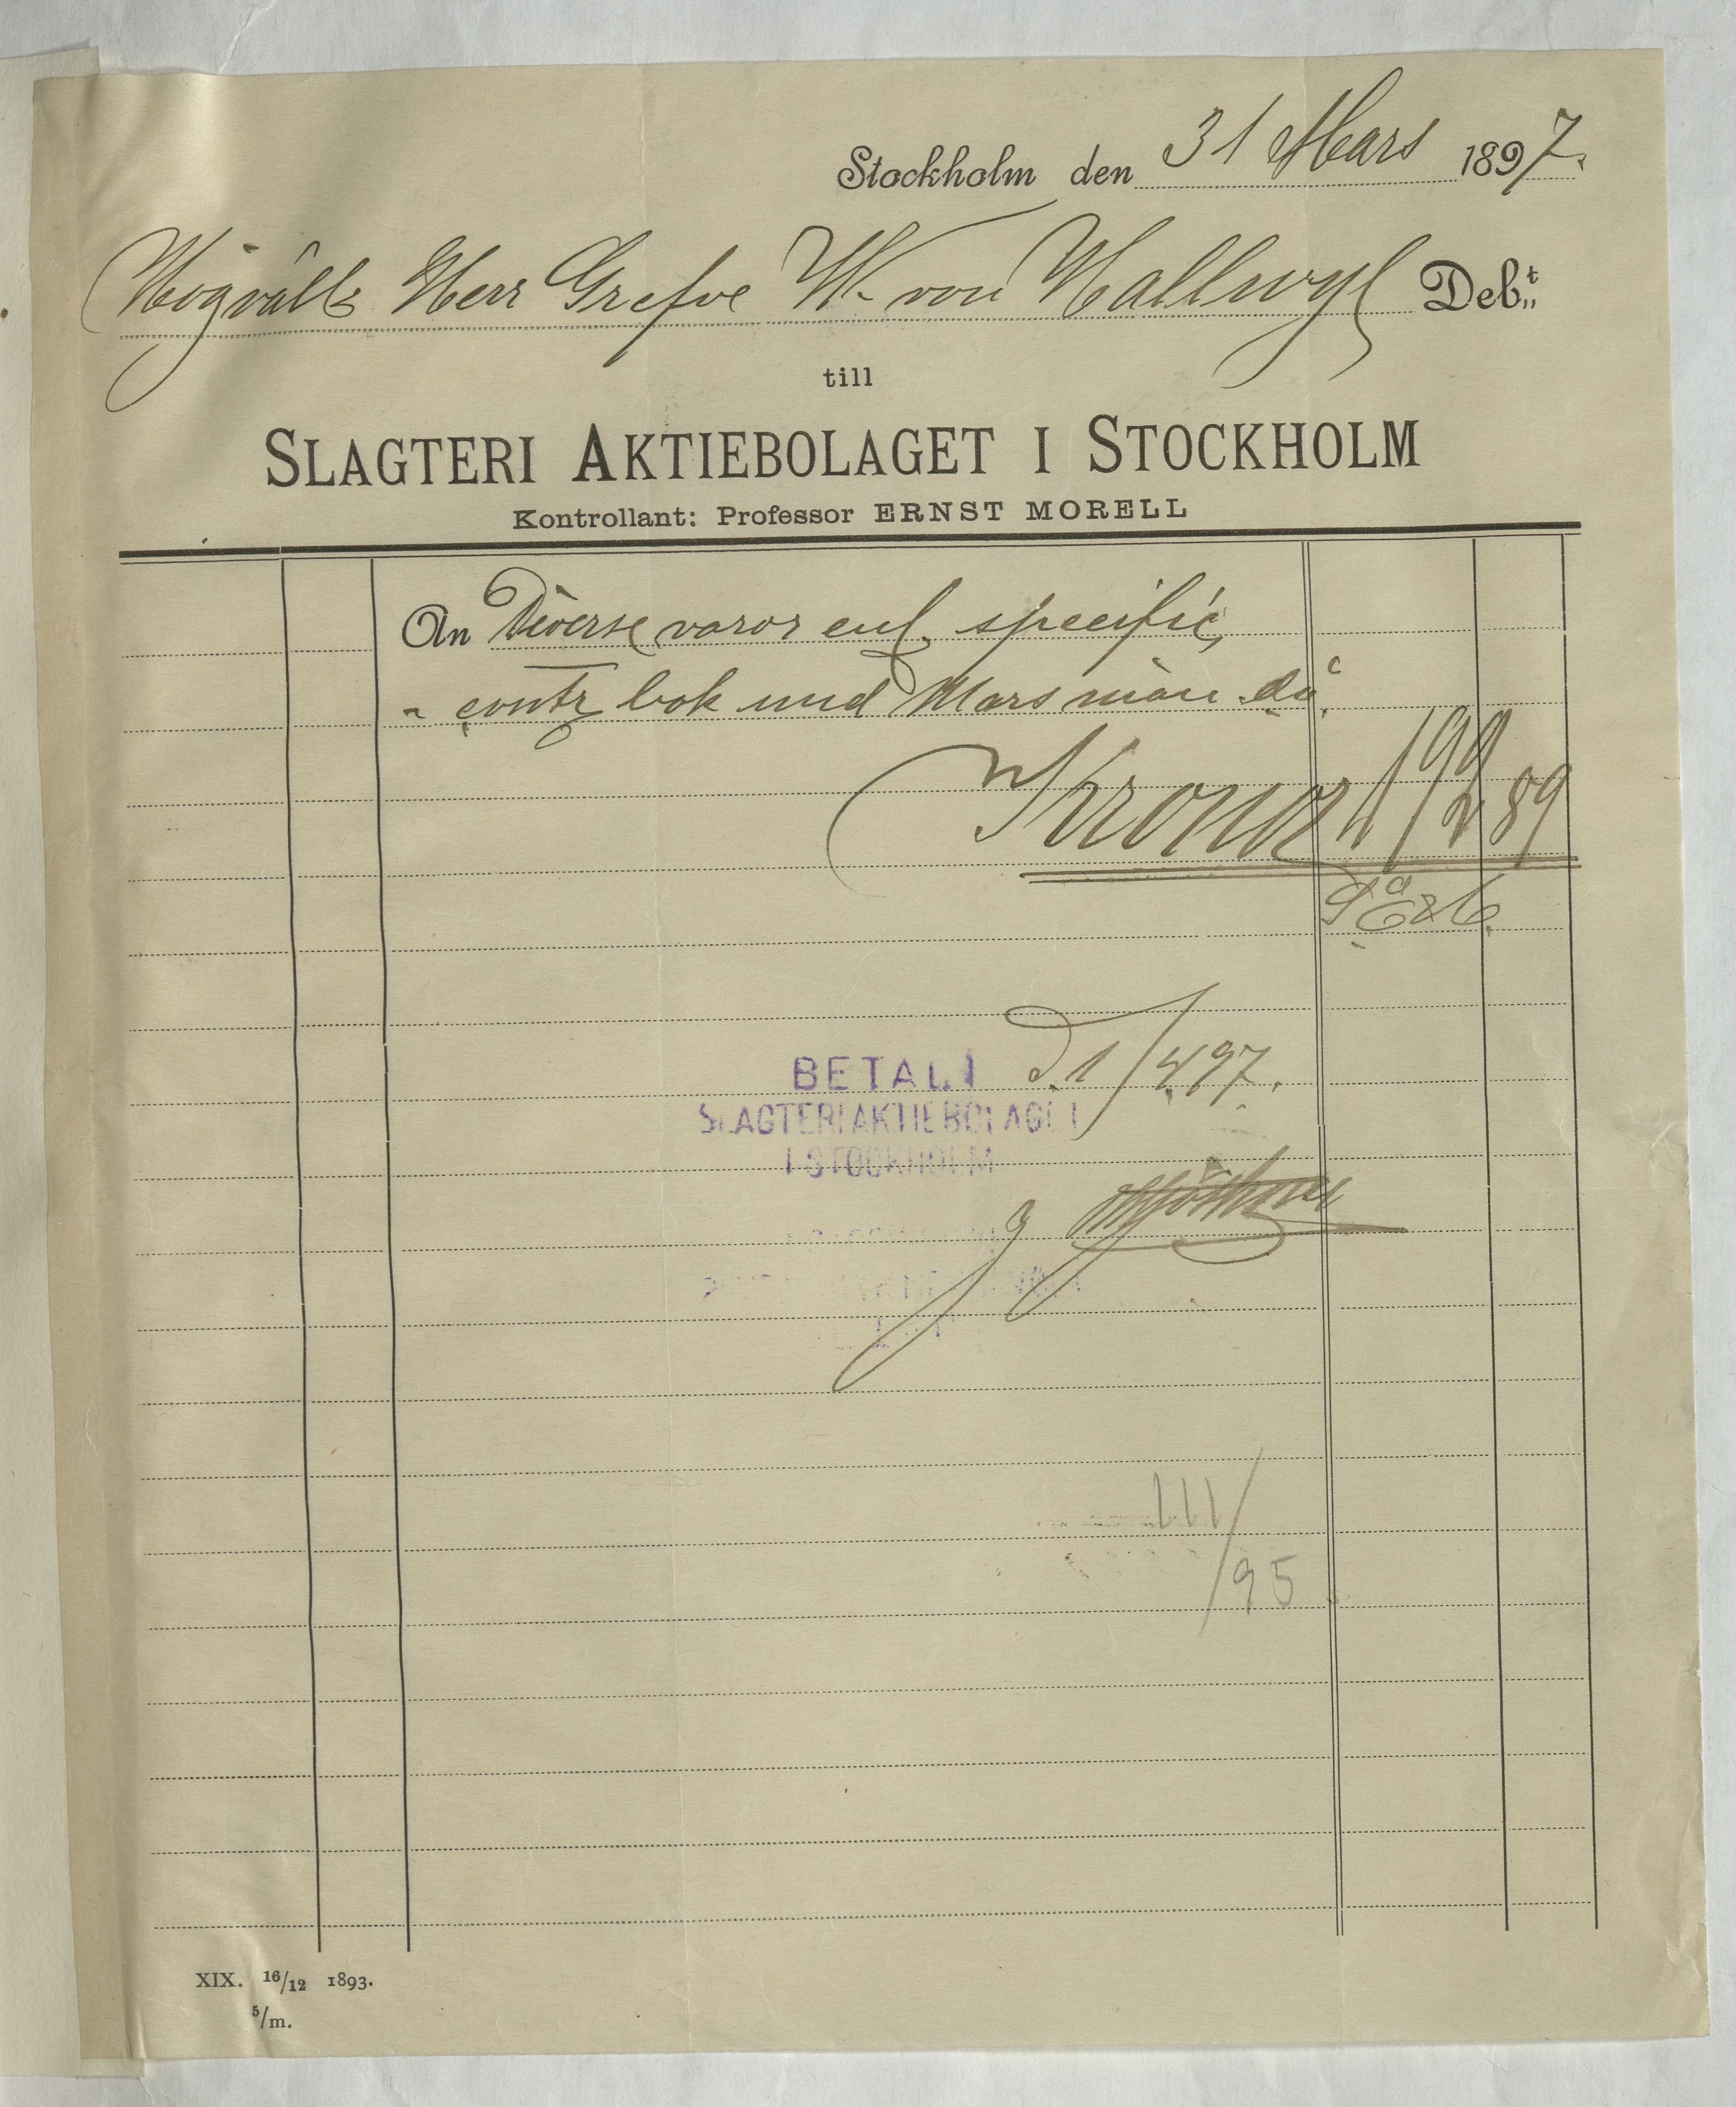 Stockholm den 31 Mars 1897.
Högvälb Herr Grefve W. von Hallwyl Deb.t
till
SLAGTERI AKTIEBOLAGET I STOCKHOLM
Kontrollant: Professor ERNST MORELL
An Diverse varor enl. specific,
contr bok und Mars mån
Kronor 89
BETALT d. 1/4 97.
SLAGTERIAKTIEBOLAGET
I STOCKHOLM
111/
95
XIX. 16/12 1893.
5/m.